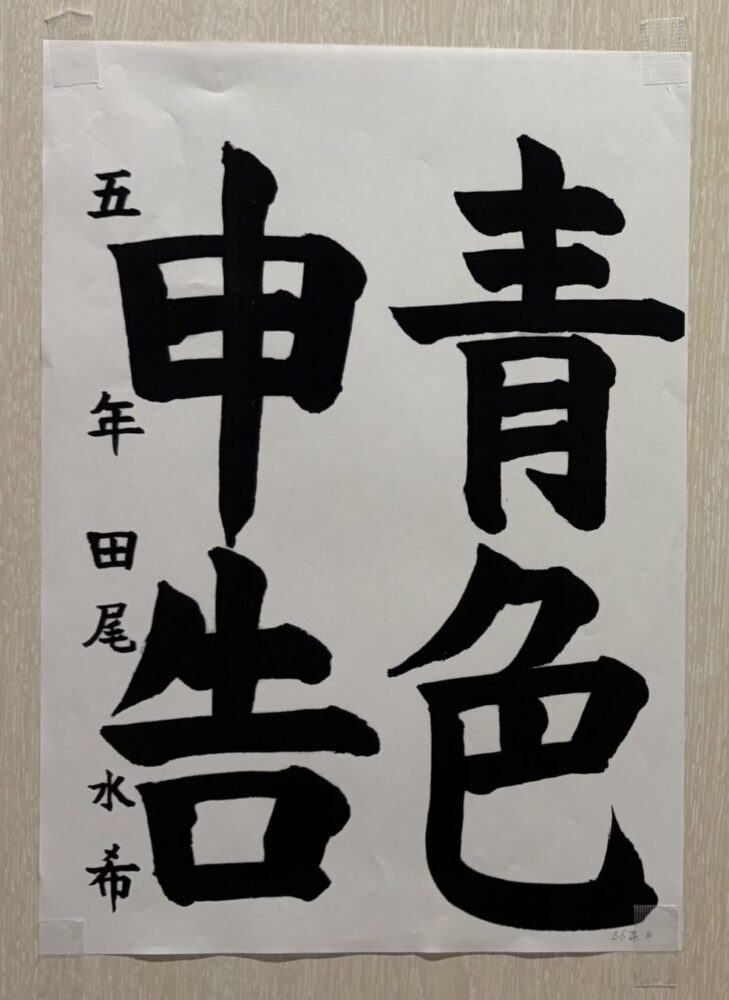 青色
申告
五年 田尾水希